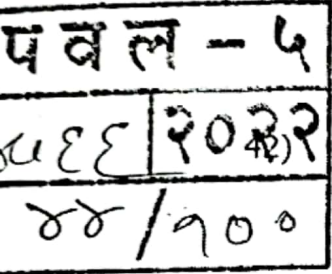 पवल - ५
५८६६ २०२२
४४/१००